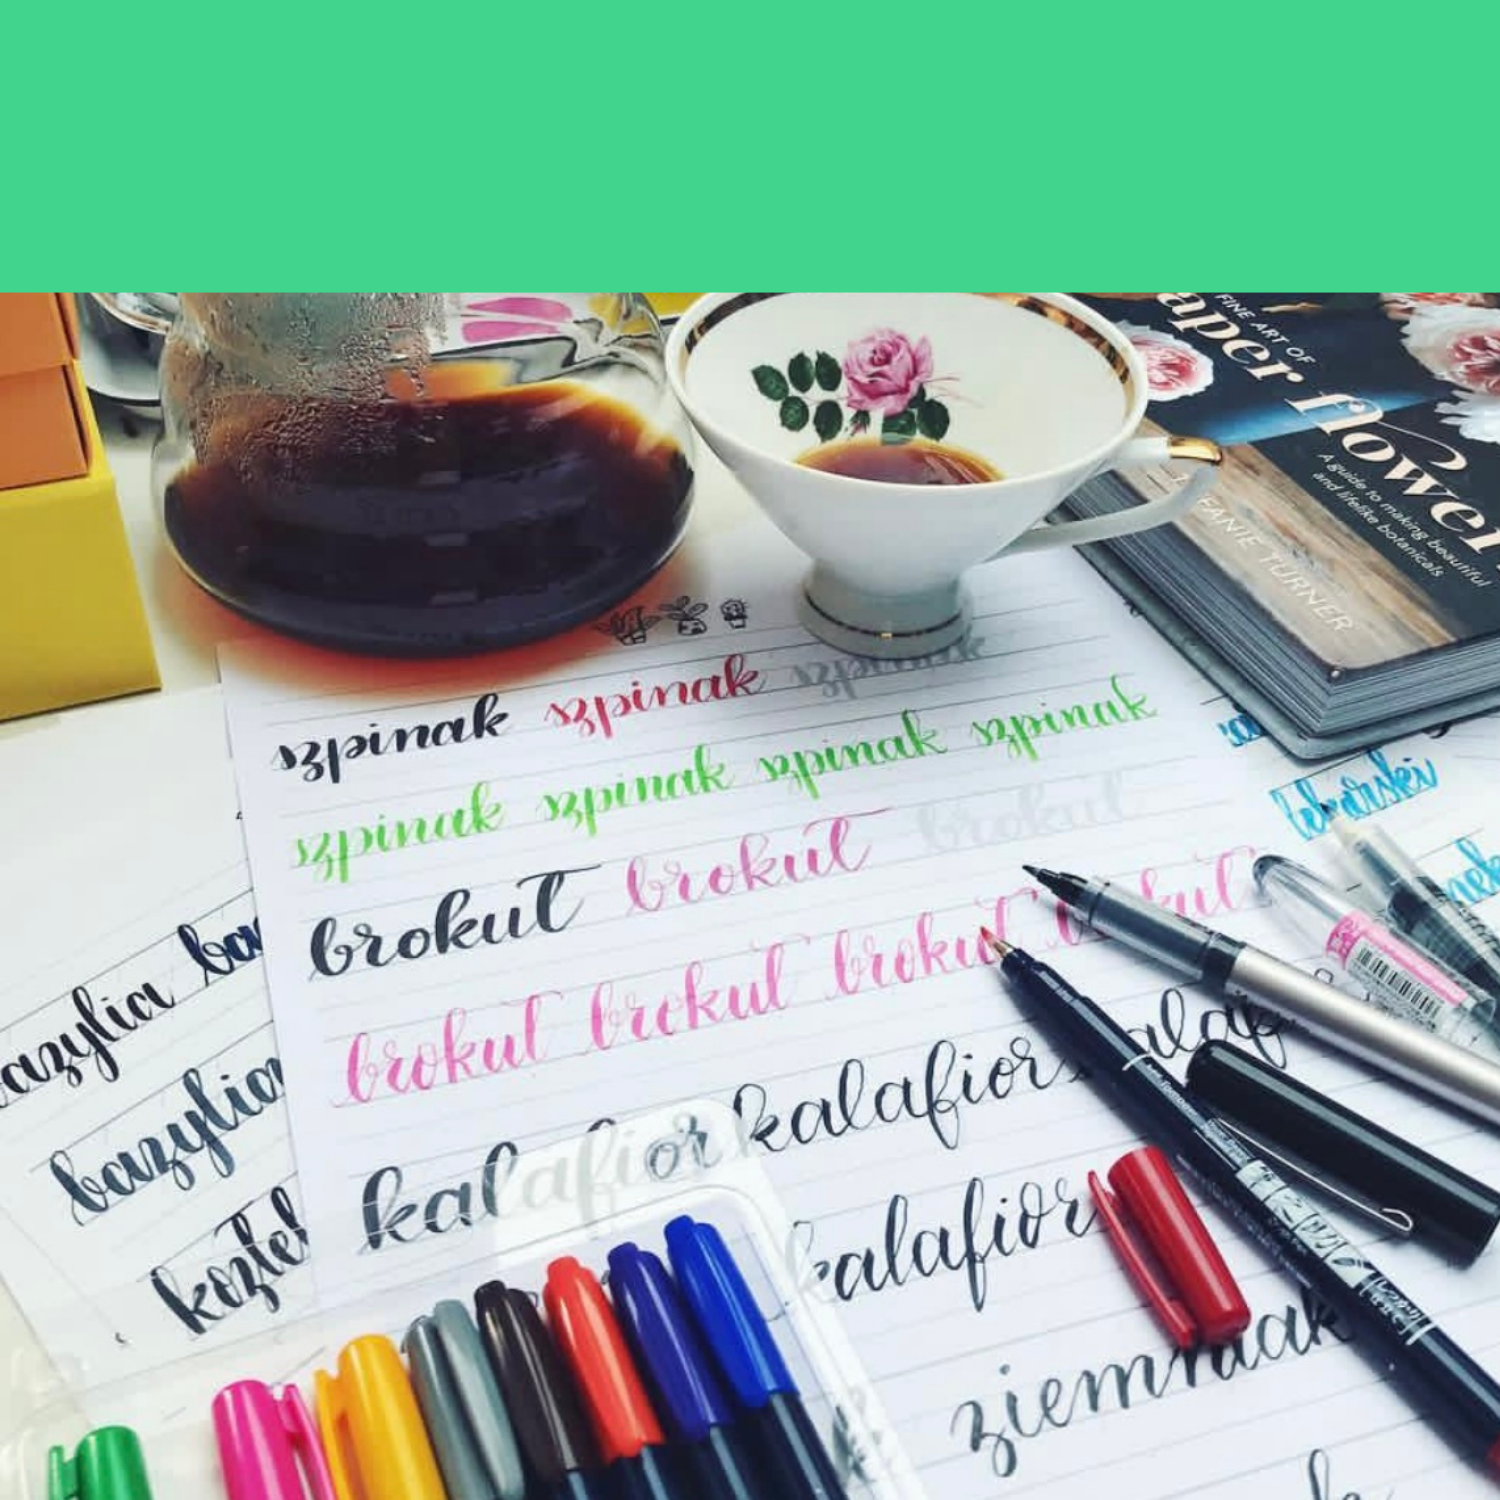 FINE ART OF
aper flower
A guide to making beautiful
and lifelike botanicals
FANIE TURNER
szpinak szpinak
szpinak szpinak szpinak szpinak
brokuł brokuł brokuł
brokuł brokuł brokuł brokuł
kalafior kalafior kalaf
kalafior
ziemniak
bazylia baz
bazylia
kozieł
lekarski
Tombow